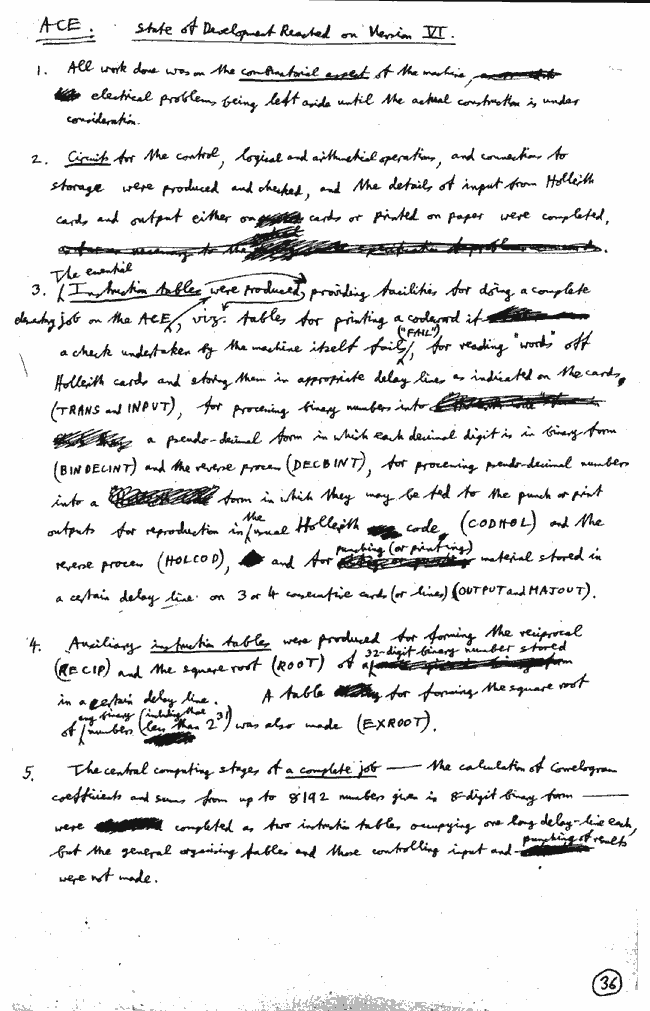 ACE. State of Development Reached on Version VI.
1. All work done was on the combinatorial aspect of the machine,
electrical problems being left aside until the actual construction is under
consideration.
2. Circuits for the control, logical and arithmetical operations, and connections to
storage were produced and checked, and the details of input from Hollerith
cards and output either on cards or printed on paper were completed,
The essential
3. Instruction tables were produced, providing facilities for doing a complete
job on the ACE, viz. tables for printing a codeword if
("FAIL")
a check undertaken by the machine itself fails, for reading "words" off
Hollerith cards and storing them in appropriate delay lines as indicated on the cards,
(TRANS and INPUT), for processing binary numbers into
a pseudo-decimal form in which each decimal digit is in binary form
(BINDECINT) and the reverse process (DECBINT), for processing pseudo-decimal numbers
into a form in which they may be fed to the punch or print
outputs for reproduction in the usual Hollerith code, (CODHOL) and the
punching (or printing)
reverse process (HOLCOD), and for material stored in
a certain delay line on 3 or 4 consecutive cards (or lines) (OUTPUT and MAJOUT).
4. Auxiliary instruction tables were produced for forming the reciprocal
32-digit binary number stored
(RECIP) and the square root (ROOT) of a
in a certain delay line. A table for forming the square root
any binary (including that
of numbers less than 2^31) was also made (EXROOT).
5. The central computing stages of a complete job — the calculation of Correlogram
coefficients and sums from up to 8192 numbers given in 8-digit binary form —
were completed as two instruction tables occupying one long delay-line each,
punching of results
but the general organising tables and those controlling input and
were not made.
36